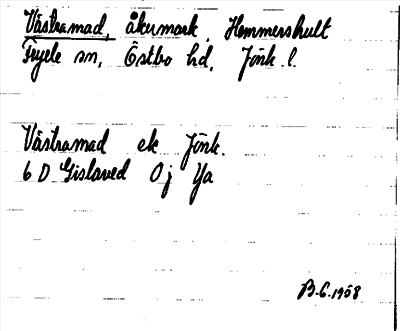 Västramad, åkermark, Hemmershult
Fryele sn, Östbo hd, Jönk. l.
Västramad ek Jönk.
6 D Gislaved 0 j Ya
B.G. 1958